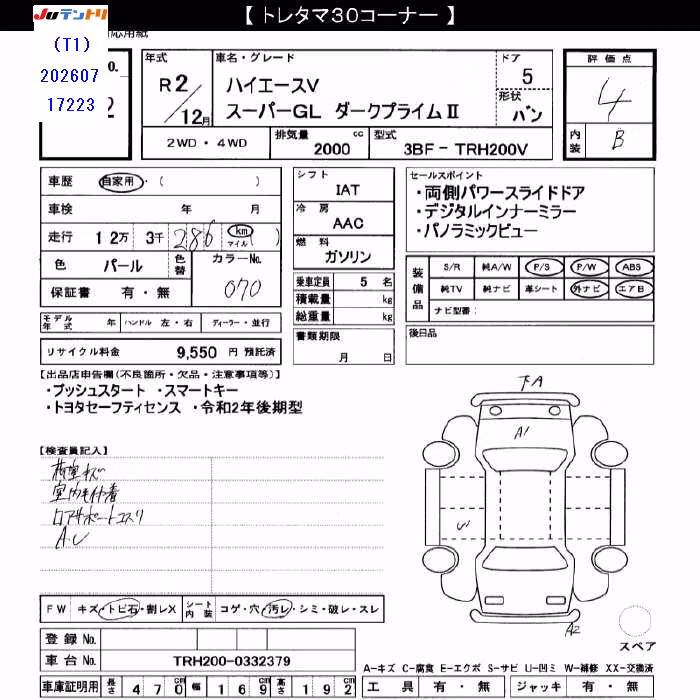 【 トレタマ30コーナー 】
JUテントリ
応用紙
(T1)
202607
17223
o.
2
年式
R 2/12月
車名・グレード
ハイエースV
スーパーGL ダークプライムⅡ
ドア
5
形状
バン
評価点
4
内装
B
2WD・4WD
排気量
2000 cc
型式
3BF - TRH200V
車歴 自家用・( )
車検 年 月
走行 12万 3千 286 km マイル ( )
色 パール 色替 カラーNo. 070
保証書 有・無
モデル年式 年 ハンドル 左・右 ディーラー・並行
リサイクル料金 9,550 円 預託済
シフト
IAT
冷房
AAC
燃料
ガソリン
乗車定員 5 名
積載量 kg
総重量 kg
書類期限
月 日
セールスポイント
・両側パワースライドドア
・デジタルインナーミラー
・パノラミックビュー
装備品
S/R 純A/W P/S P/W ABS
純TV 純ナビ 革シート 外ナビ エアB
ナビ型番:
後日品
【出品店申告欄(不良箇所・欠品・注意事項等)】
・プッシュスタート ・スマートキー
・トヨタセーフティセンス ・令和2年後期型
【検査員記入】
荷室キズ
室内毛付着
ロアサポートコスリ
A.U
下A
A1
W
A2
スペア
FW キズ・トビ石・割レX シート内装 コゲ・穴・汚レ・シミ・破レ・スレ
登録 No.
車台 No. TRH200-0332379
車庫証明用 長さ 470 幅 169 高さ 192
A-キズ C-腐食 E-エクボ S-サビ U-凹ミ W-補修 XX-交換済
工具 有・無 ジャッキ 有・無